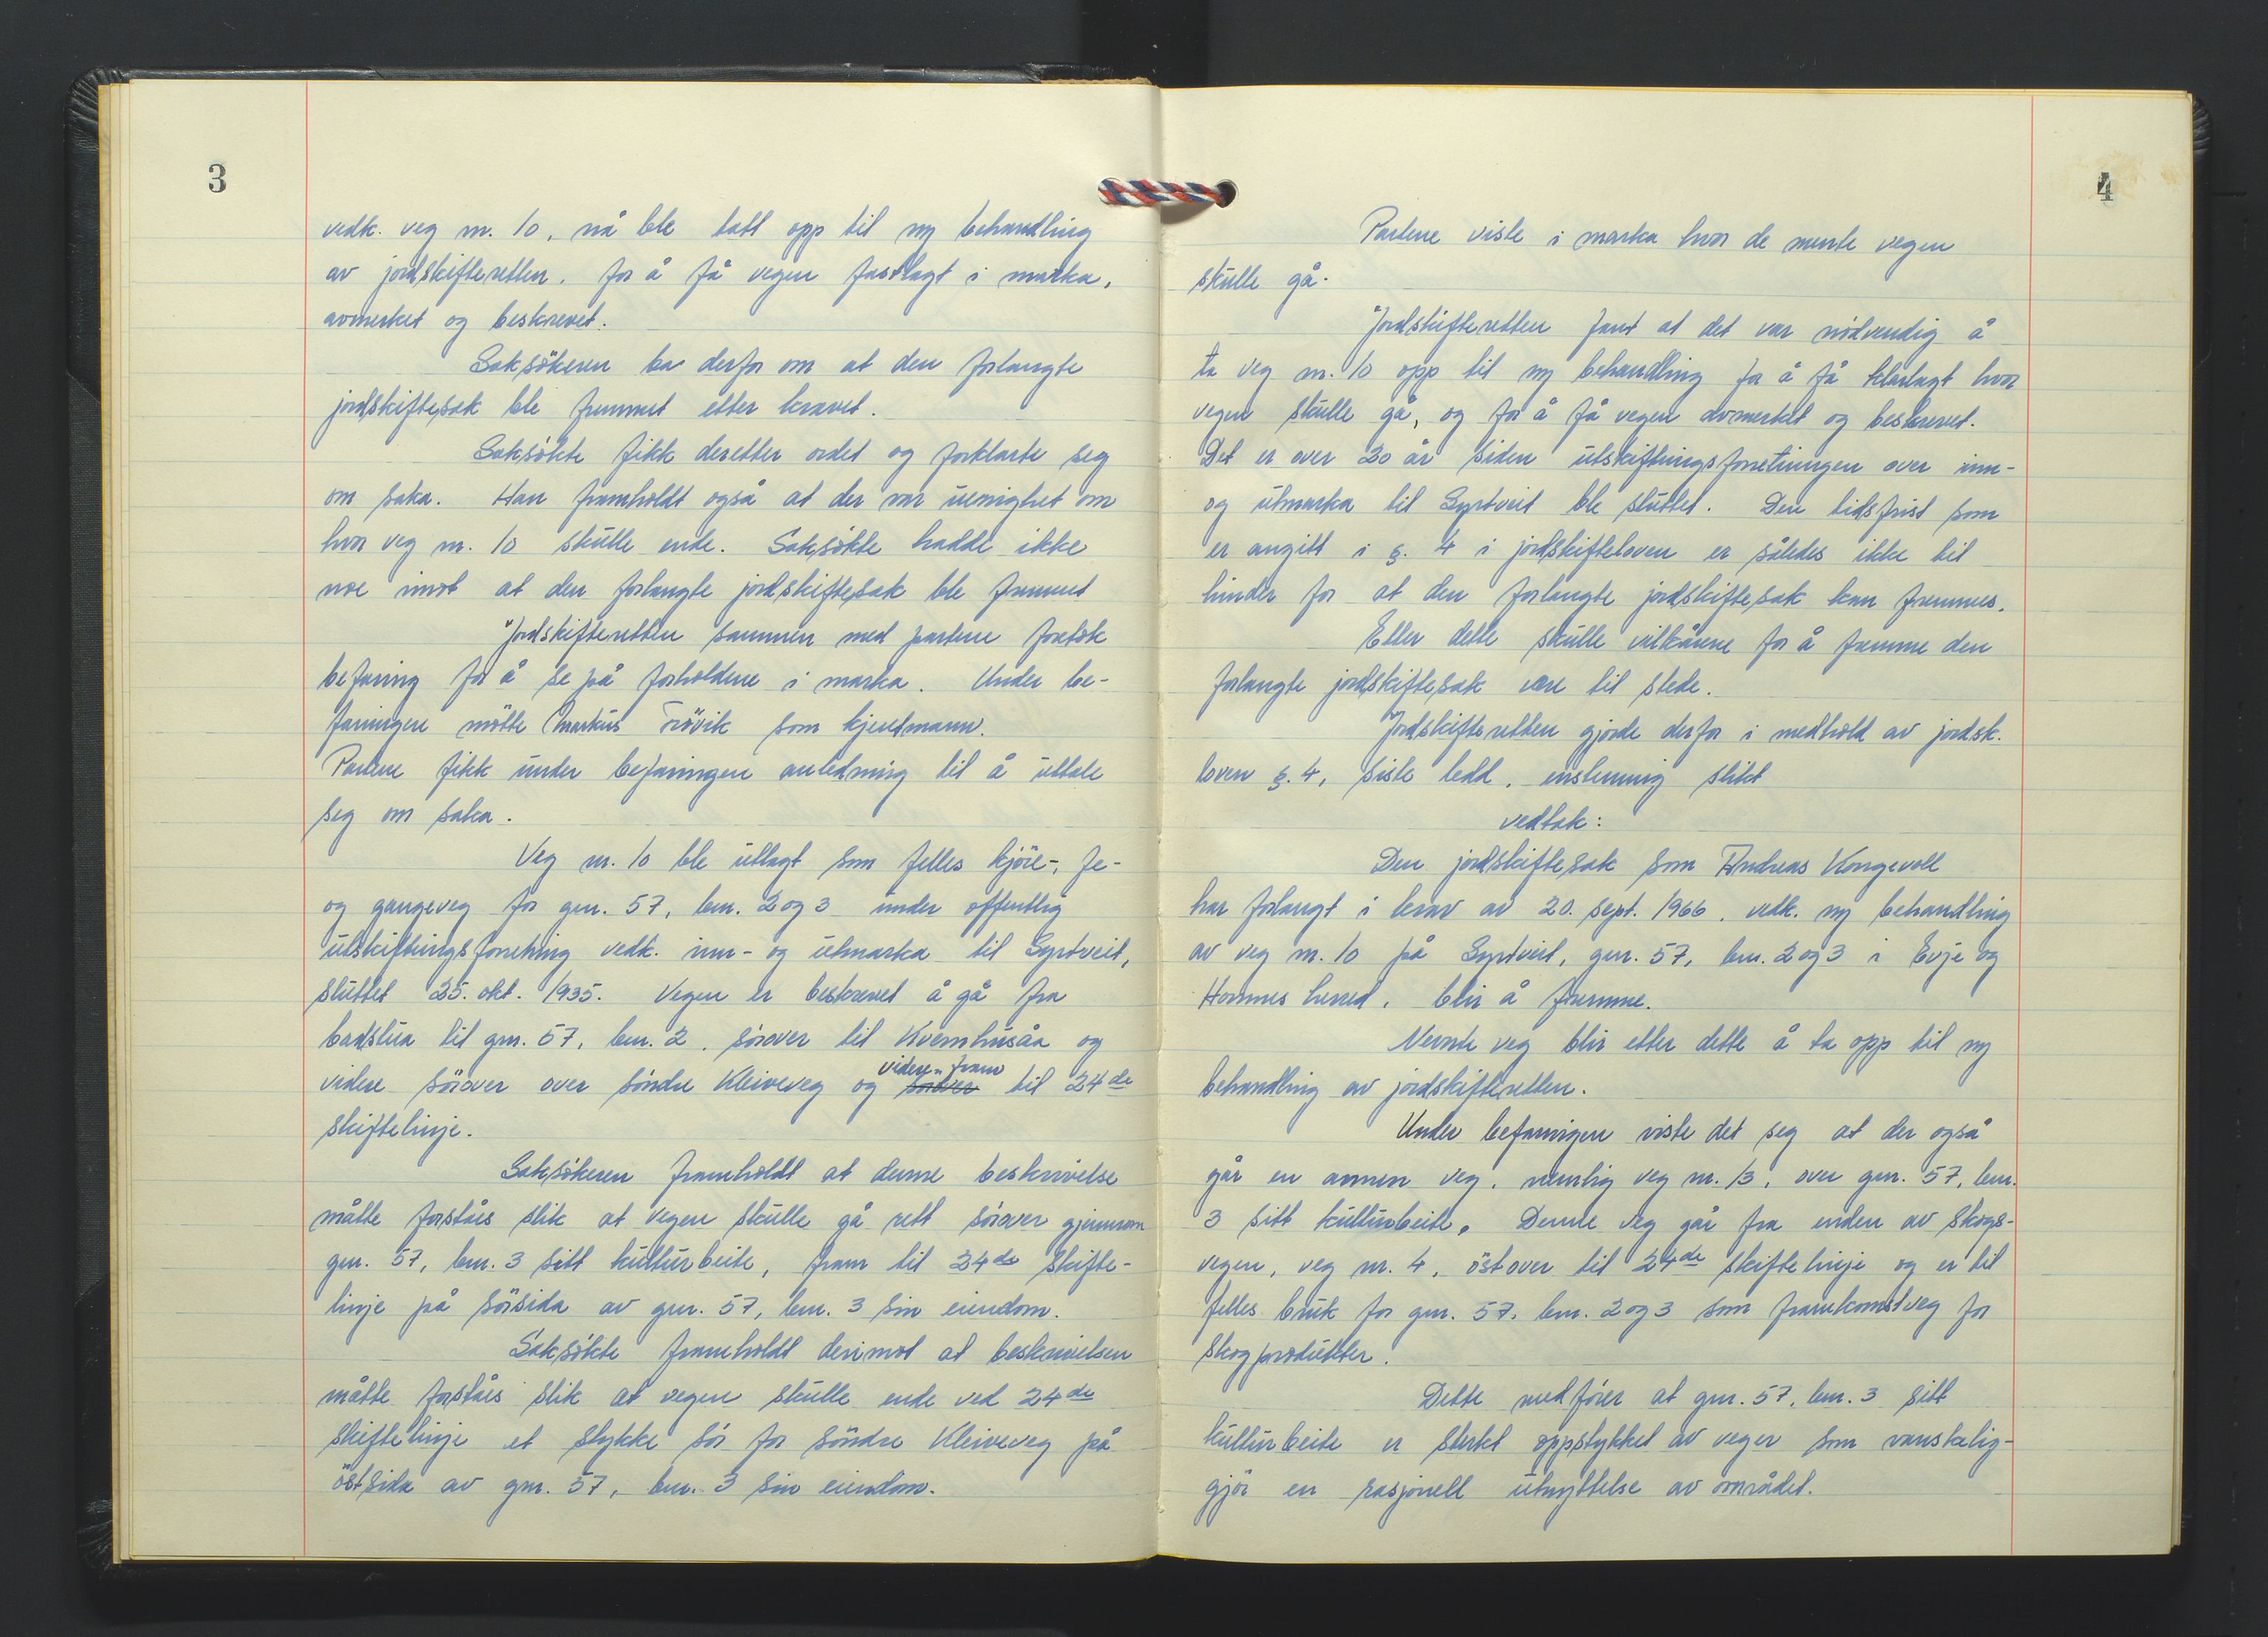 3
vedk. veg nr. 10, nå ble tatt opp til ny behandling
av jordskifteretten, for å få vegen fastlagt i marka,
avmerket og beskrevet.
Saksökeren ba derfor om at den forlangte
jordskiftesak ble fremmet etter kravet.
Saksökte fikk deretter ordet og forklarte seg
om saka. Han framholdt også at der var uenighet om
hvor veg nr. 10 skulle ende. Saksökte hadde ikke
noe imot at den forlangte jordskiftesak ble fremmet
Jordskifteretten sammen med partene foretok
befaring for å se på forholdene i marka. Under be-
faringen mötte Markus Trövik som kjentmann.
Partene fikk under befaringen anledning til å uttale
seg om saka.
Veg nr. 10 ble utlagt som felles kjöre-, fe-
og gangeveg for gnr. 57, bnr. 2 og 3 under offentlig
utskiftningsforretning vedk. inn- og utmarka til Syrtveit,
sluttet 25. okt. 1935. Vegen er beskrevet å gå fra
badstua til gnr. 57, bnr. 2, sörover til Kvernhusåa og
videre sörover over söndre Kleiveveg og sörover videre fram til 24de
skiftelinje.
Saksökeren framholdt at denne beskrivelse
måtte forståes slik at vegen skulle gå rett sörover gjennom
gnr. 57, bnr. 3 sitt kulturbeite, fram til 24de skifte-
linje på sörsida av gnr. 57, bnr. 3 sin eiendom.
Saksökte framholdt derimot at beskrivelsen
måtte forståes slik at vegen skulle ende ved 24de
skiftelinje et stykke sör for söndre Kleiveveg på
östsida av gnr. 57, bnr. 3 sin eiendom.
4
Partene viste i marka hvor de mente vegen
skulle gå.
Jordskifteretten fant at det var nödvendig å
ta veg nr. 10 opp til ny behandling for å få klarlagt hvor
vegen skulle gå, og for å få vegen avmerket og beskrevet.
Det er over 20 år siden utskiftningsforretningen over inn-
og utmarka til Syrtveit ble sluttet. Den tidsfrist som
er angitt i §. 4 i jordskifteloven er således ikke til
hinder for at den forlangte jordskiftesak kan fremmes.
Etter dette skulle vilkårene for å fremme den
forlangte jordskiftesak være til stede.
Jordskifteretten gjorde derfor i medhold av jordsk.
loven §. 4, siste ledd, enstemmig slikt
vedtak:
Den jordskiftesak som Andreas Kongevoll
har forlangt i krav av 20. sept. 1966, vedk. ny behandling
av veg nr. 10 på Syrtveit, gnr. 57, bnr. 2 og 3 i Evje og
Hornnes herred, blir å fremme.
Nevnte veg blir etter dette å ta opp til ny
behandling av jordskifteretten.
Under befaringen viste det seg at der også
går en annen veg, nemlig veg nr. 13, over gnr. 57, bnr.
3 sitt kulturbeite. Denne veg går fra enden av skogs-
vegen, veg nr. 4, östover til 24de skiftelinje og er til
felles bruk for gnr. 57, bnr. 2 og 3 som framkomstveg for
skogprodukter.
Dette medförer at gnr. 57, bnr. 3 sitt
kulturbeite er sterkt oppstykket av veger som vanskelig-
gjör en rasjonell utnyttelse av området.